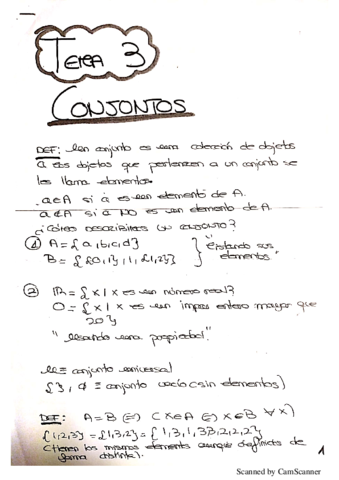 TEMA 3
CONJUNTOS
DEF: Un conjunto es una colección de objetos
A los objetos que pertenecen a un conjunto se
les llama elementos.
a∈A si a es un elemento de A.
a∉A si a NO es un elemento de A.
¿Cómo describimos un conjunto?
① A = {a,b,c,d}
B = {{0,1},1,{1,2}}
"listando sus
elementos".
② ℝ = {x | x es un número real}
O = {x | x es un impar entero mayor que
20}
"usando una propiedad".
U ≡ conjunto universal
{}, ∅ ≡ conjunto vacío (sin elementos)
DEF: A = B ⇔ (x∈A ⇔ x∈B ∀x)
{1,2,3} = {1,3,2} = {1,3,1,3,2,2,2}
(tienen los mismos elementos aunque definidos de
forma distinta).
1
Scanned by CamScanner